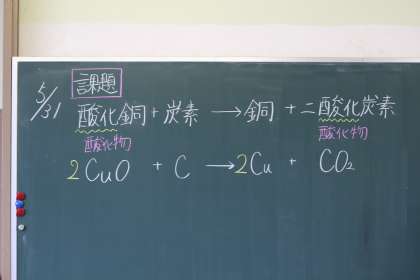 5/31 課題
酸化銅+炭素 → 銅 + 二酸化炭素
酸化物 酸化物
2CuO + C → 2Cu + CO₂